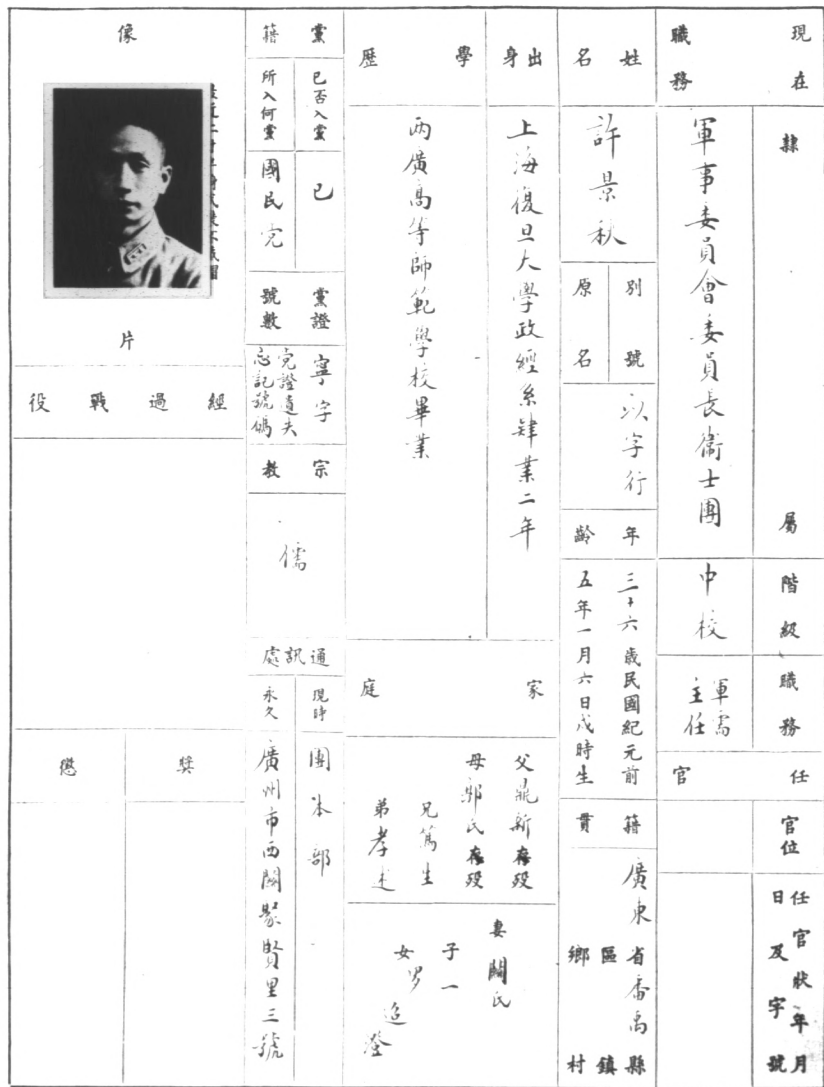 現在職務
隸屬
軍事委員會委員長衞士團
階級
中校
職務
軍需
主任
任官
官位
任官狀年月
日及字號
姓名
許景秋
別號
原名
以字行
年齡
三十六歲民國紀元前
五年一月六日戌時生
籍貫
廣東省番禺縣
區鎮
鄉村
出身
上海復旦大學政經系肄業二年
學歷
兩廣高等師範學校畢業
家庭
父鼎新存歿
母鄭氏存歿
兄篤生
弟孝
妻關氏
子一
女
男
澄
黨籍
已否入黨
已
所入何黨
國民党
黨證
號數
寧字
党證遺失
忘記號碼
宗教
儒
通訊處
現時
團本部
永久
廣州市西關聚賢里三號
像
片
經過戰役
獎
懲